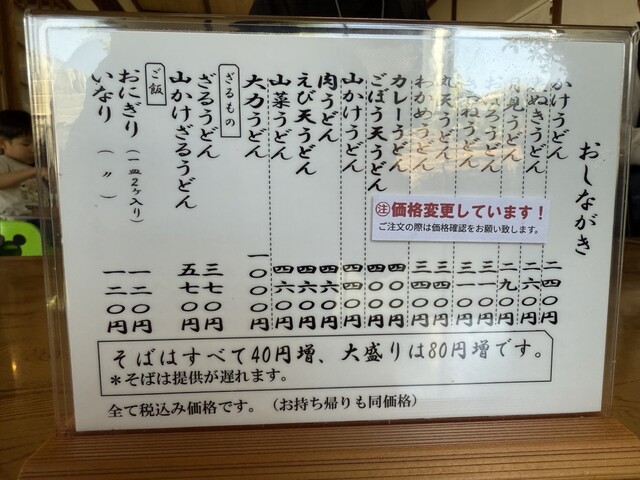 おしながき
かけうどん 二四〇円
たぬきうどん 二六〇円
月見うどん 二九〇円
おぼろうどん 三一〇円
きつねうどん 三一〇円
丸天うどん 三四〇円
わかめうどん 三四〇円
カレーうどん 四〇〇円
ごぼう天うどん 四〇〇円
山かけうどん 四四〇円
肉うどん 四六〇円
えび天うどん 四六〇円
山菜うどん 四六〇円
大力うどん 一〇〇〇円
ざるもの
ざるうどん 三七〇円
山かけざるうどん 五七〇円
ご飯
おにぎり（一皿2ヶ入り） 一二〇円
いなり（〃） 一二〇円
㊟価格変更しています！
ご注文の際は価格確認をお願い致します。
そばはすべて40円増、大盛りは80円増です。
＊そばは提供が遅れます。
全て税込み価格です。（お持ち帰りも同価格）